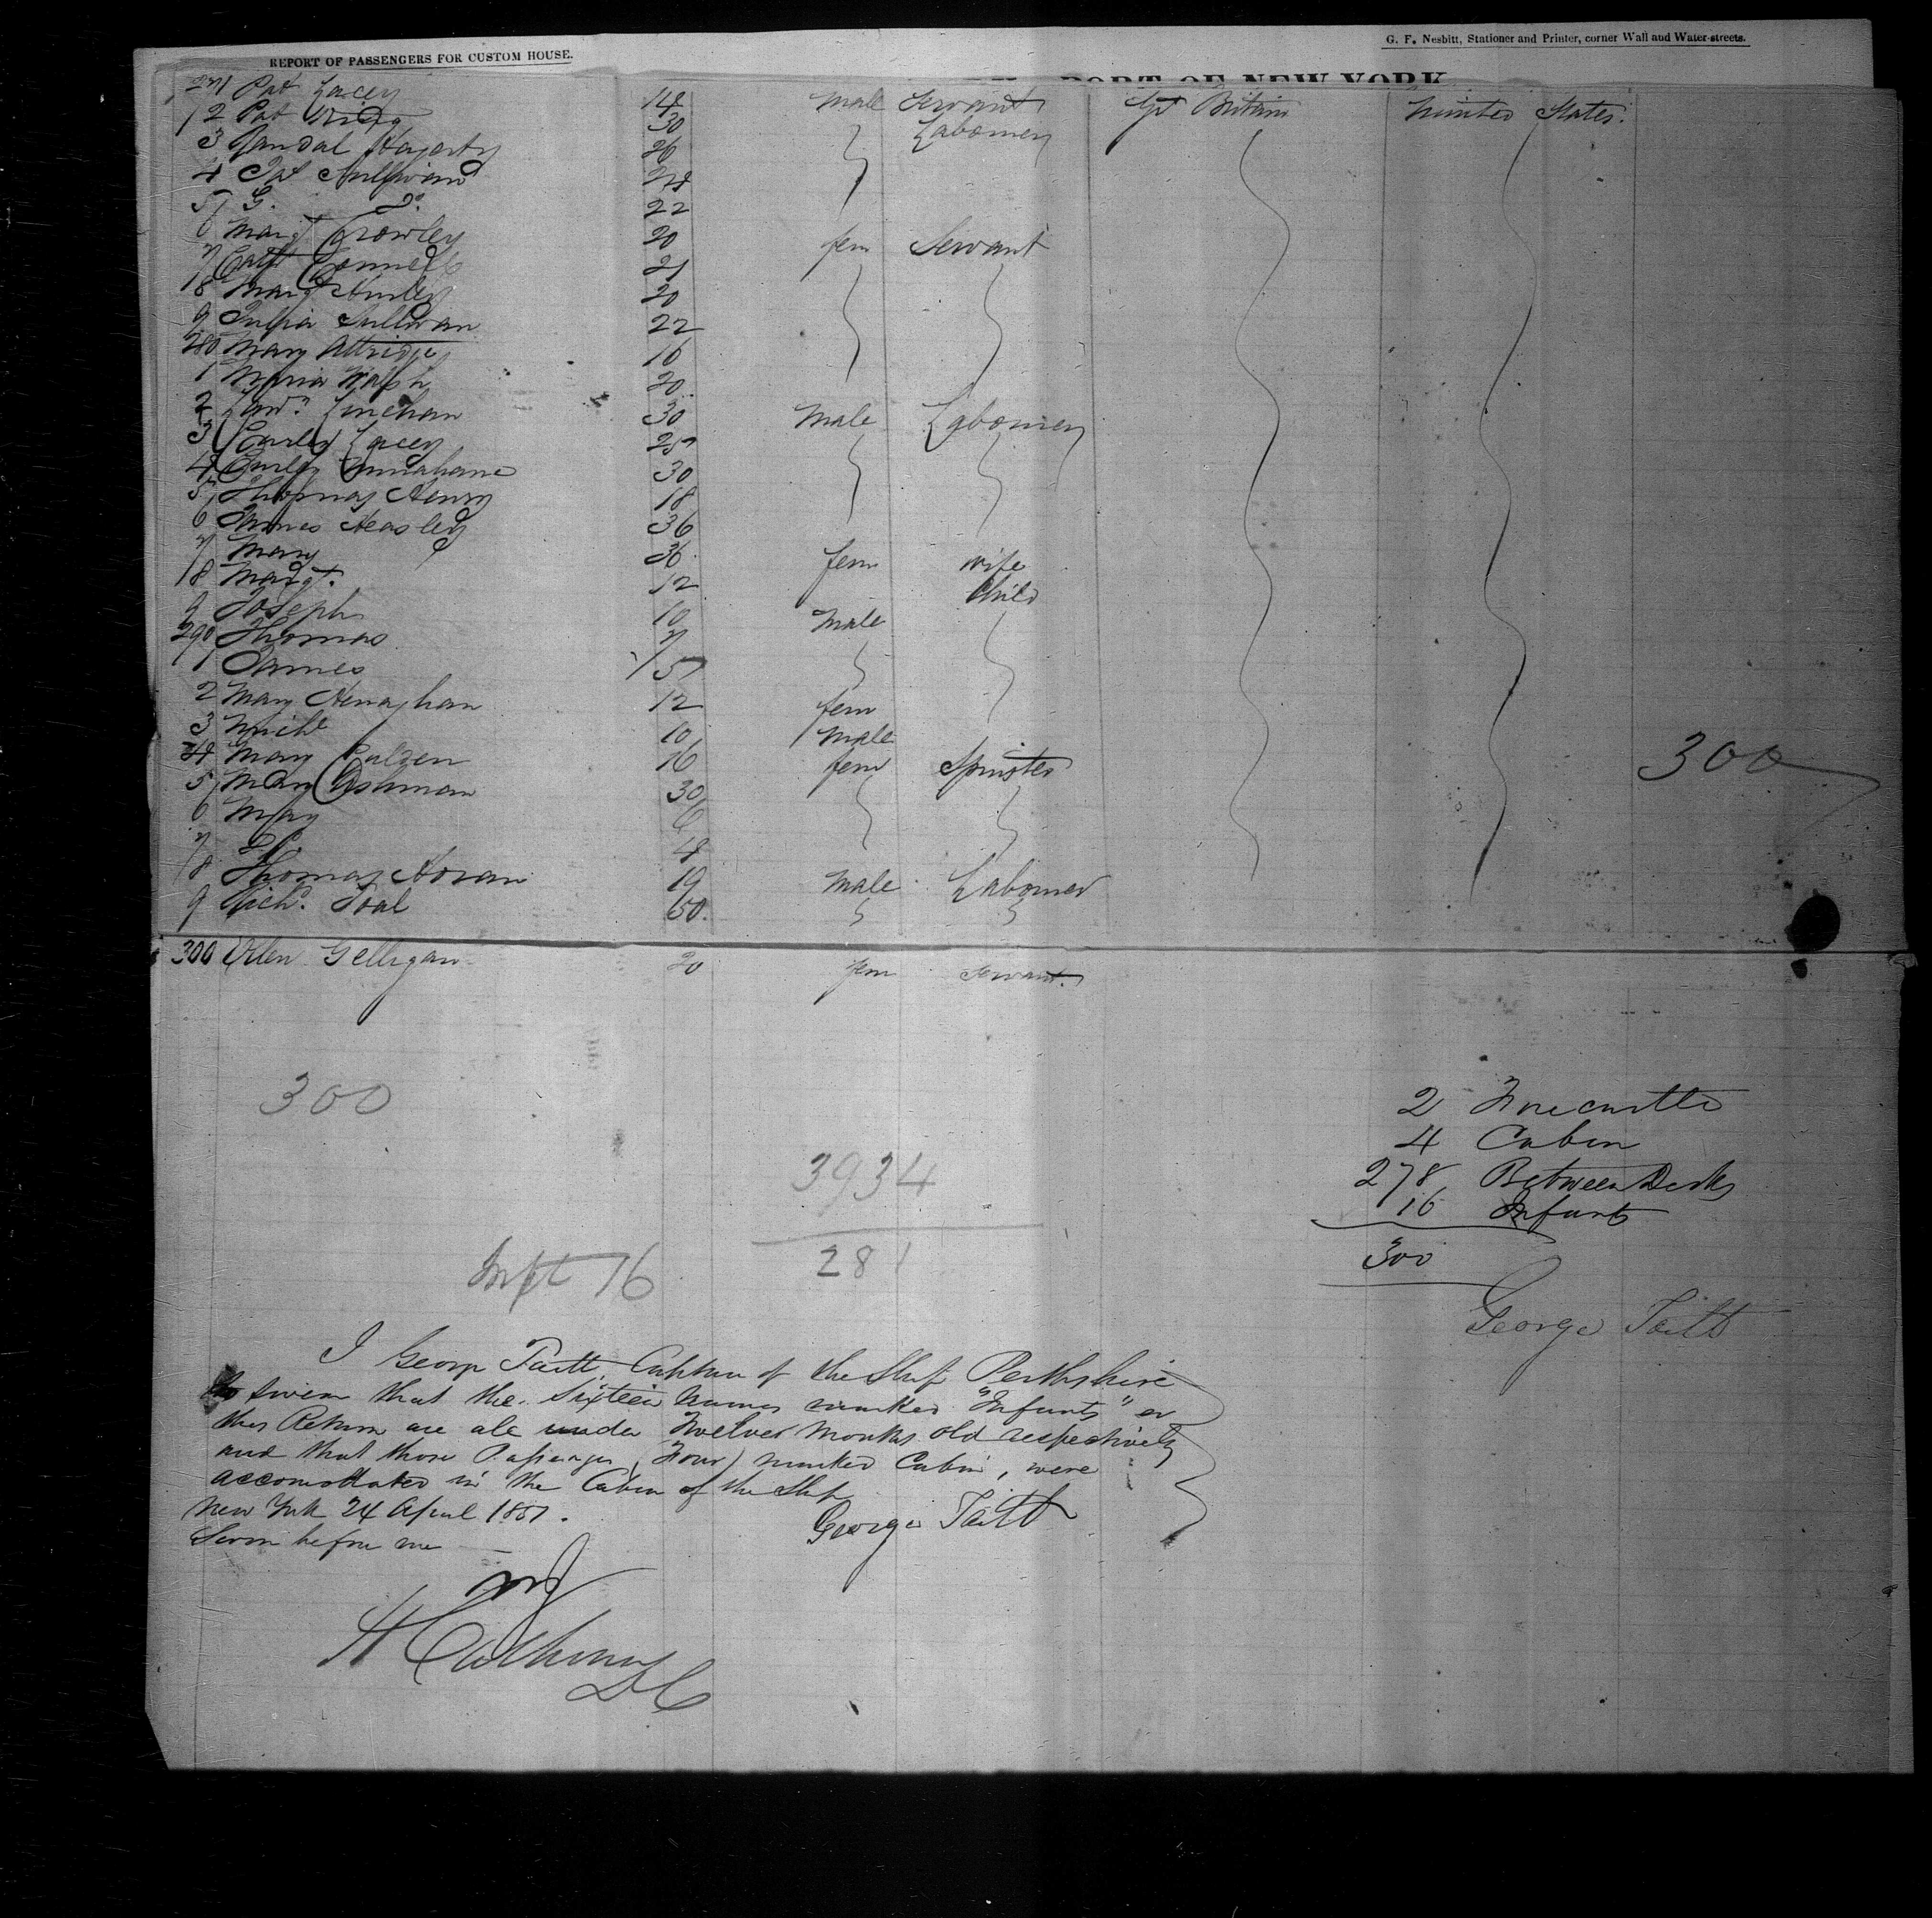 REPORT OF PASSENGERS FOR CUSTOM HOUSE.
G. F. Nesbitt, Stationer and Printer, corner Wall and Water-streets.
PORT OF NEW YORK
271 Pat Lacey 14 Male Servant Gt Britain United States.
2 Pat 30 Labourer
3 Randal Hagarty 26
4 Pat Sullivan 24
5 G. Do. 22
6 Margt Crowley 20 fem Servant
7 Cath Connell 21
8 Margt Hurley 20
9 Julia Sullivan 22
280 Mary Attridge 16
1 Maria Walsh 20
2 Linehan 30 Male Labourer
3 Lacey 25
4 30
5 Thomas Henry 18
6 James Heasley 36
7 Mary 36 fem wife
8 Margt. 12 Child
9 Joseph 10 Male
290 Thomas 7
1 James 5
2 Mary Henaghan 12 fem
3 Michl 10 Male
4 Mary 16 fem Spinster
5 Mary Cushman 30
6 May 6
7 Do 4
8 Thomas Horan 19 Male Labourer
9 Richd. Toal 50.
300
300 Ellen Gelligan 20 fem Servant.
300
2 Forecastle
4 Cabin
278 Between Decks
16 Infants
300
George Taitt
3934
281
Inft 16
I George Taitt Captain of the Ship Perthshire
do swear that the Sixteen Names marked "Infants" on
this Return are all under Twelve Months old respectively
and that those Passengers (Four) marked Cabin, were
accomodated in the Cabin of the Ship
New York 24 April 1851.
George Taitt
Sworn before me